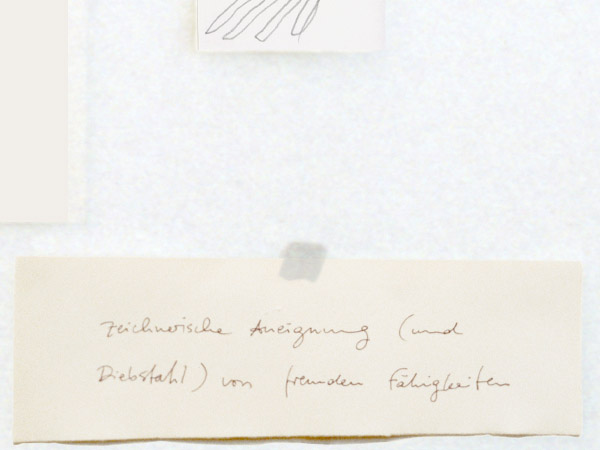 zeichnerische Aneignung (und
Diebstahl) von fremden Fähigkeiten